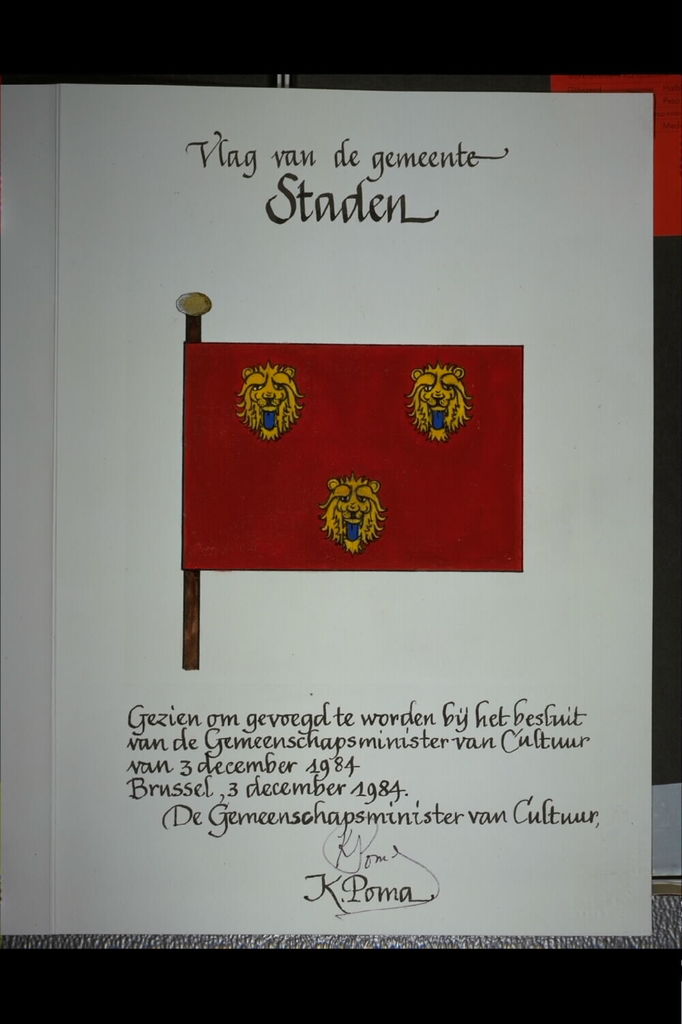 Vlag van de gemeente
Staden
Gezien om gevoegd te worden bij het besluit
van de Gemeenschapsminister van Cultuur
van 3 december 1984
Brussel, 3 december 1984.
De Gemeenschapsminister van Cultuur,
K Poma
K. Poma